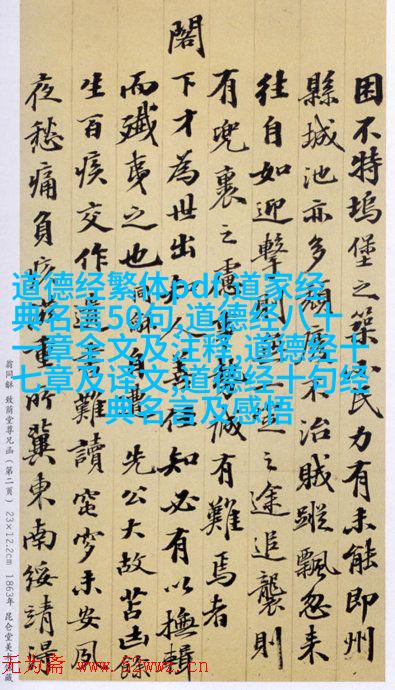 困不特塢堡之築民力有未能即州
縣城池亦多頹廢不治賊蹤飄忽來
往自如迎擊則之途追襲則
有兜裹之慮誠有難焉者
閣下才為世出人知必有以撫輯
而殲夷之也同龢自遭 先公大故苫凷餘
生百疾交作難讀窀穸未安風
夜愁痛負疚重所冀東南綏靖
道德经繁体pdf,道家经
典名言50句,道德经八十
一章全文及注释,道德经十
七章及译文,道德经十句经
典名言及感悟
翁同龢 致荫堂尊兄函(第二页) 23×12.2cm 1863年 昆仑堂美术馆藏
无为斋 www.52wwz.cn